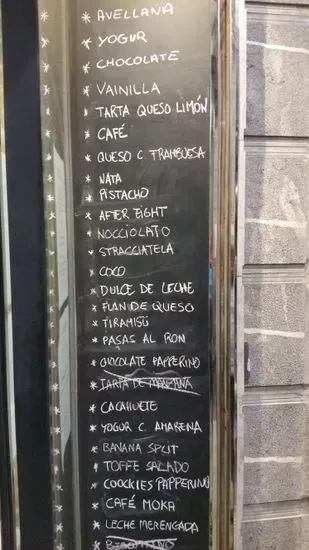 * AVELLANA
* YOGUR
* CHOCOLATE
* VAINILLA
* TARTA QUESO LIMÓN
* CAFÉ
* QUESO C. FRAMBUESA
* NATA
* PISTACHO
* AFTER EIGHT
* NOCCIOLATO
* STRACCIATELA
* COCO
* DULCE DE LECHE
* FLAN DE QUESO
* TIRAMISÚ
* PASAS AL RON
* CHOCOLATE PAPPERINO
* TARTA DE MANZANA
* CACAHUETE
* YOGUR C. AMARENA
* BANANA SPLIT
* TOFFE SALADO
* COOCKIES PAPPERINO
* CAFÉ MOKA
* LECHE MERENGADA